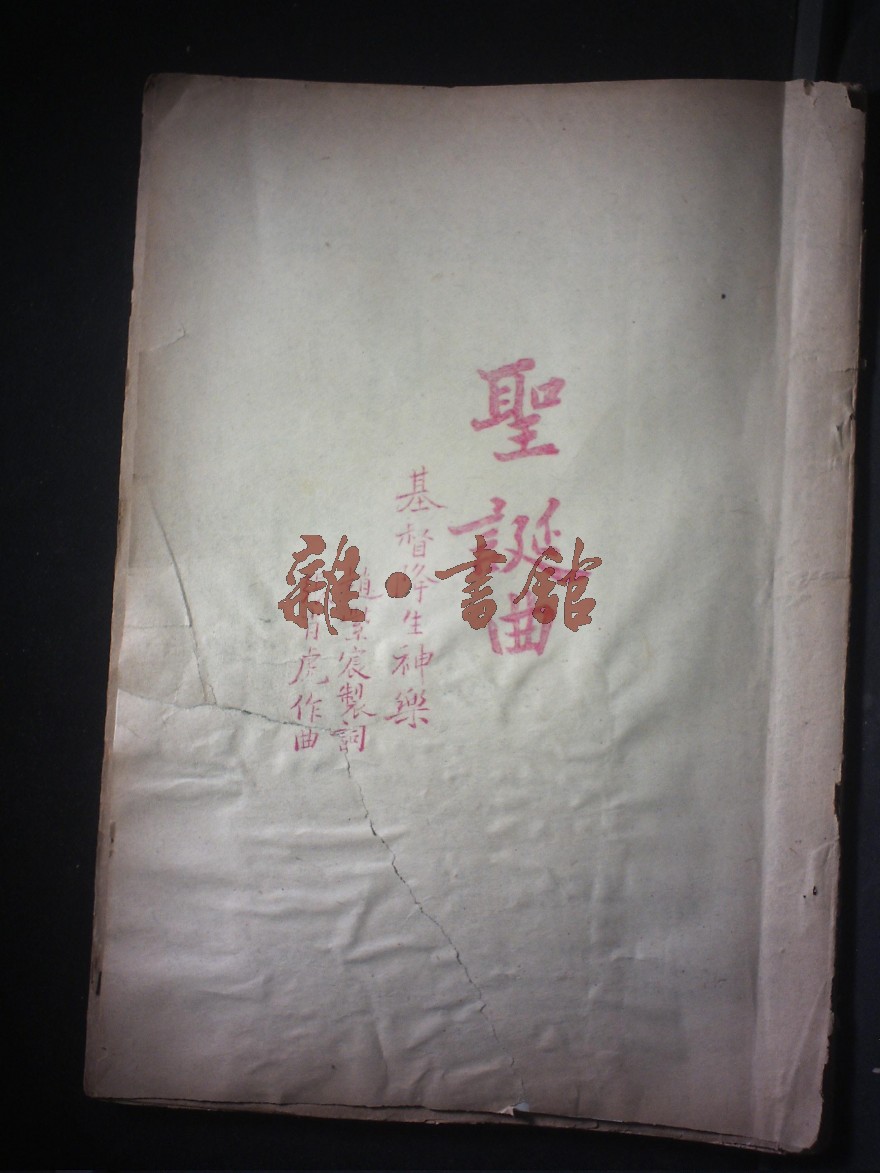 聖誕曲
基督降生神樂
趙紫宸製詞
虎作曲
雜·書館